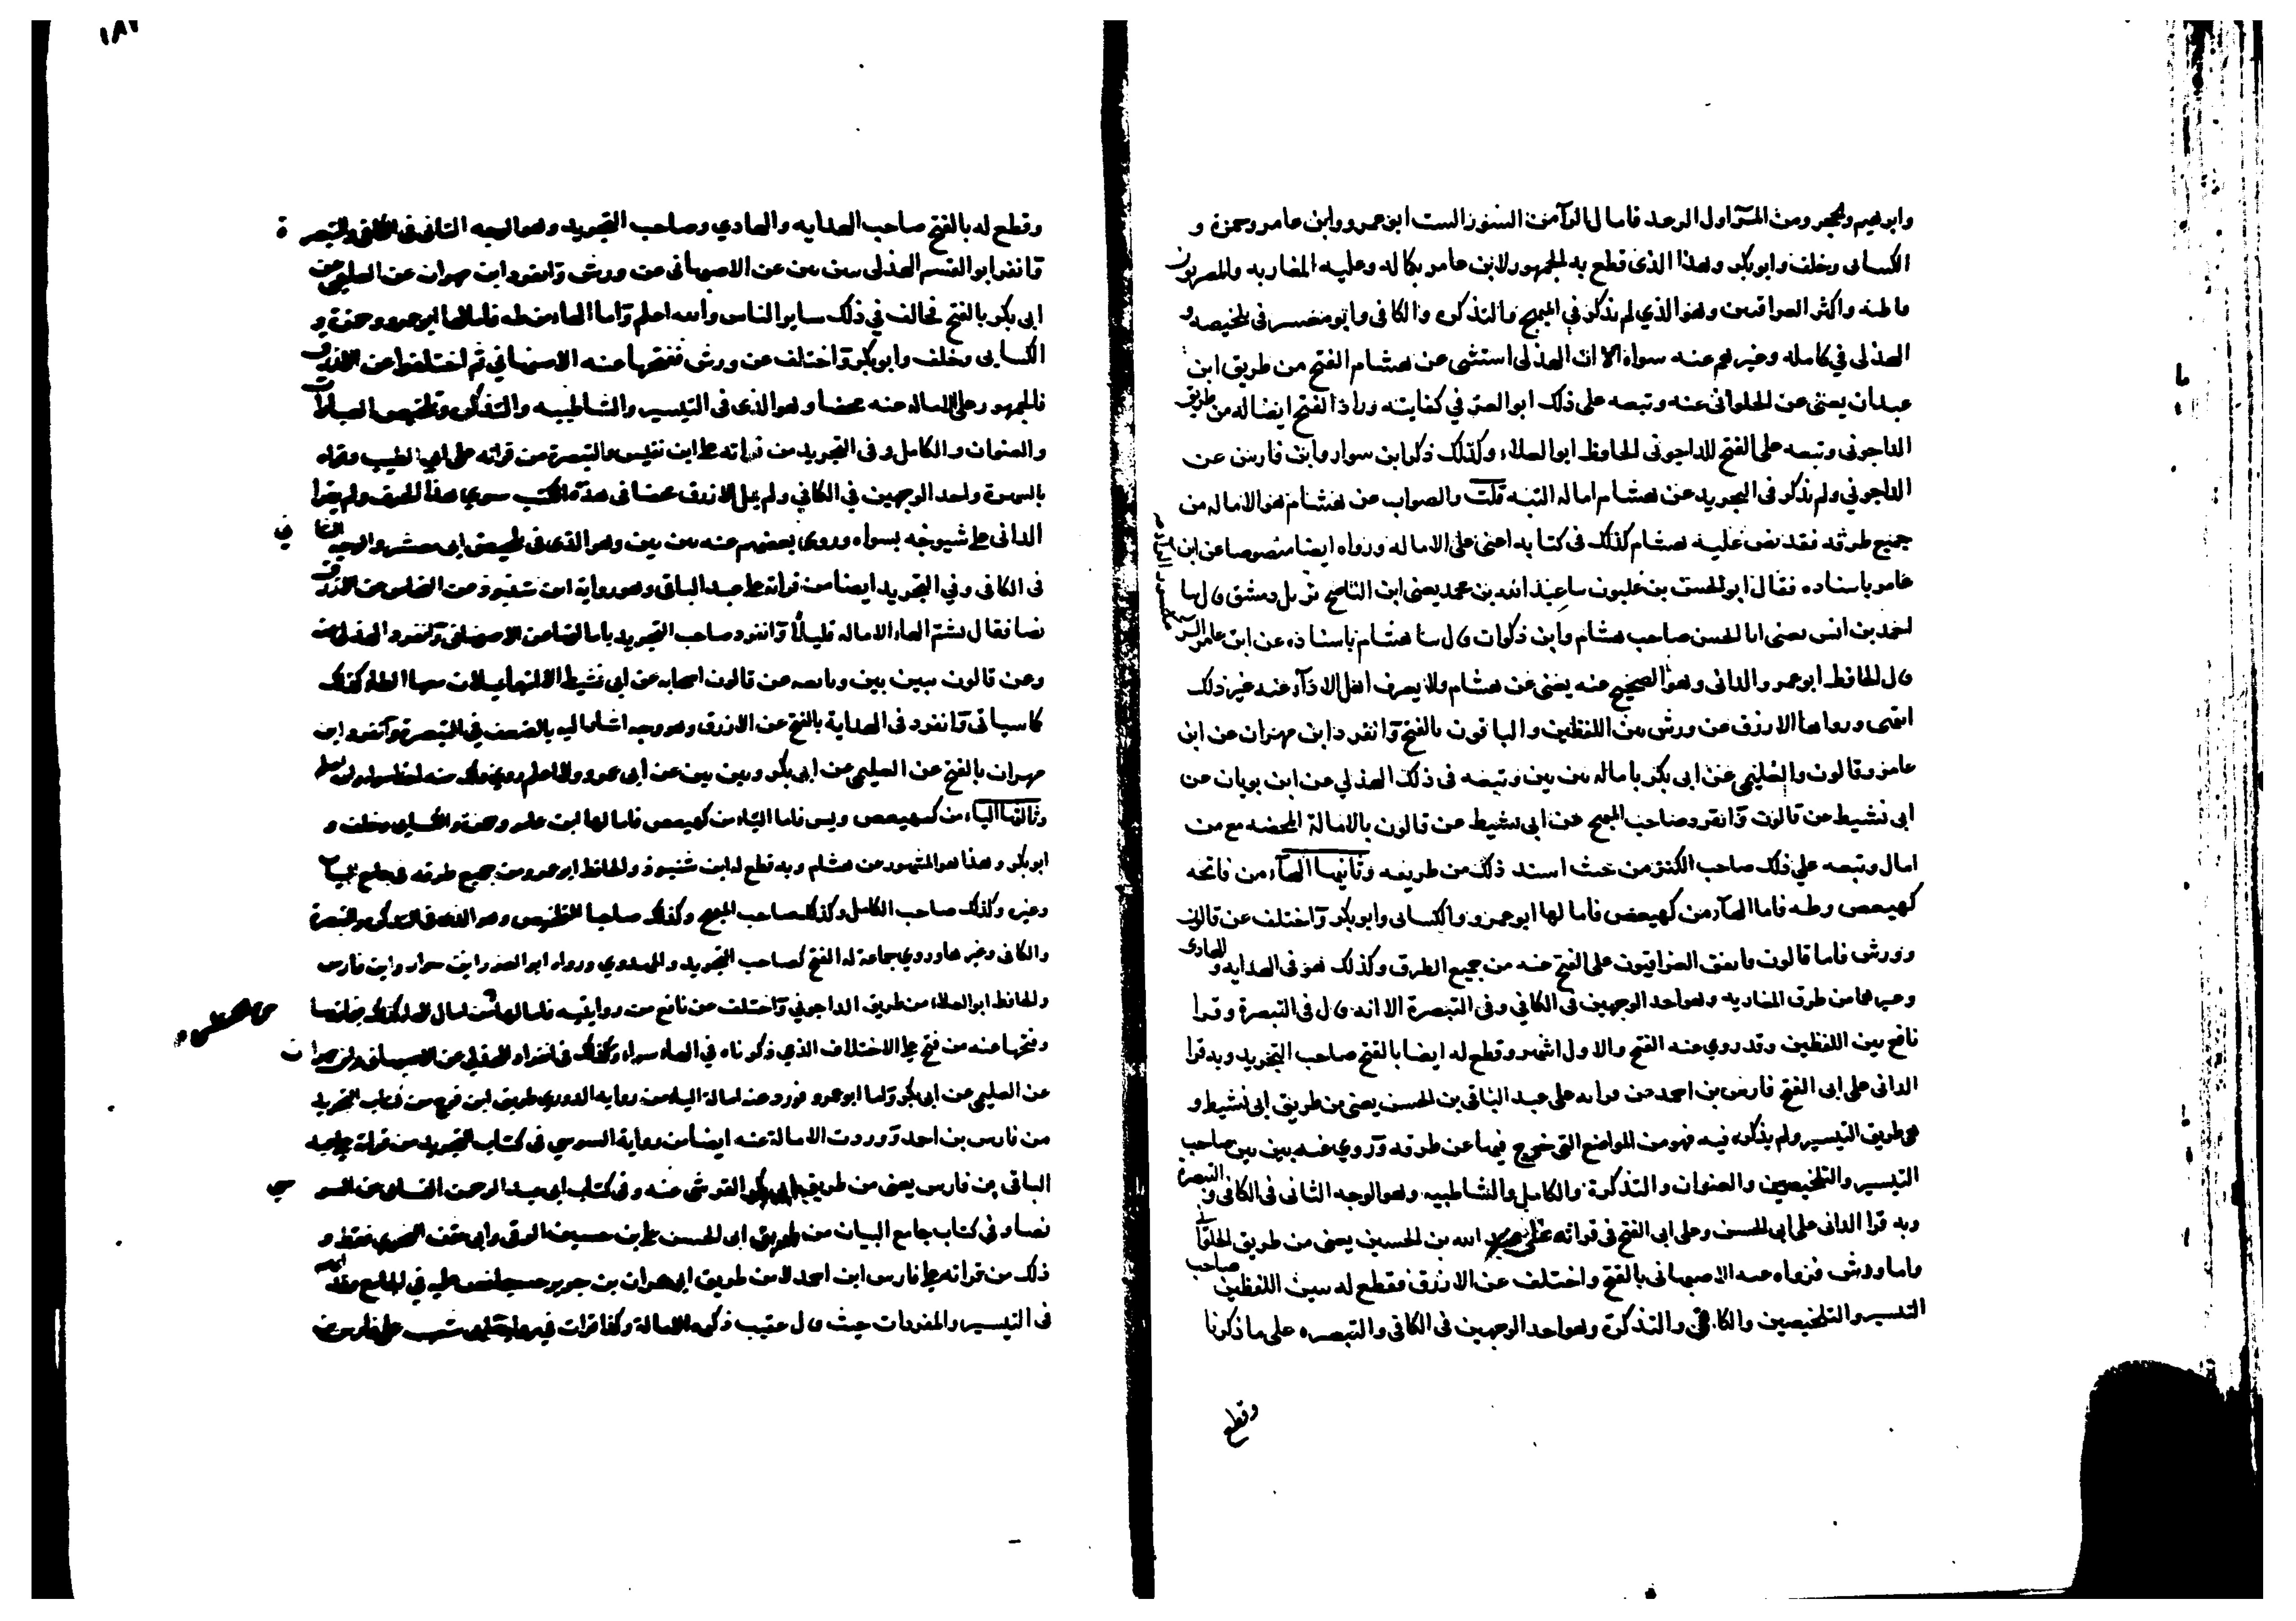 وابرهيم والحجر ومن المرآ اول الرعد فامال الرآ من السور الست ابو عمرو وابن عامر وحمزة و
الكسائى وخلف وابو بكر وهذا الذى قطع به الجمهور لابن عامر بكماله وعليه المغاربه والمصريون
قاطبه واكثر العراقيين وهو الذي لم يذكر في المبهج والتذكره والكافى وابو معشر فى تلخيصه و
الهذلى في كامله وغيرهم عنه سواه الا ان الهذلى استثنى عن هشام الفتح من طريق ابن
عبدان يعنى عن الحلوانى عنه وتبعه على ذلك ابو العز في كفايته وزاد الفتح ايضا له من طريق
الداجونى وتبعه على الفتح للداجونى الحافظ ابو العلاء وكذلك ذكر ابن سوار وابن فارس عن
الداجونى ولم يذكر فى التجريد عن هشام اماله البته قلت والصواب عن هشام هو الاماله من
جميع طرقه فقد نص عليه هشام كذلك فى كتابه اعنى على الاماله ورواه ايضا منصوصا عن ابن
عامر باسناده فقال ابو الحسن بن غلبون سا عبد الله بن محمد يعنى ابن الناصح نزيل دمشق قال سا
احمد بن انس يعنى ابا الحسن صاحب هشام وابن ذكوان قال سا هشام باسناده عن ابن عامر الر
قال الحافظ ابو عمرو الدانى وهو الصحيح عنه يعنى عن هشام ولا يعرف اهل الادآء عنه غير ذلك
انتهى ورواها الازرق عن ورش بين اللفظين والباقون بالفتح وانفرد ابن مهران عن ابن
عامر وقالون والعليمى عن ابى بكر باماله بين بين وتبعه فى ذلك الهذلي عن ابن بويان عن
ابى نشيط عن قالون وانفرد صاحب المبهج عن ابى نشيط عن قالون بالامالة المحضه مع من
امال وتبعه علي ذلك صاحب الكنز من حيث اسند ذلك من طريقه وثانيها الهآء من فاتحه
كهيعص وطه فاما الهآء من كهيعص فامالها ابو عمرو والكسائى وابو بكر واختلف عن قالون
وورش فاما قالون فاتفق العراقيون على الفتح عنه من جميع الطرق وكذلك هو فى الهدايه والهادى
وغيرهما من طرق المغاربه وهو احد الوجهين فى الكافي وفى التبصرة الا انه قال فى التبصرة وقرا
نافع بين اللفظين وقد روي عنه الفتح والاول اشهر وقطع له ايضا بالفتح صاحب التجريد وبه قرا
الدانى على ابى الفتح فارس بن احمد من قراته على عبد الباقى بن الحسن يعنى من طريق ابى نشيط و
هى طريق التيسير ولم يذكره فيه فهو من المواضع التى خرج فيها عن طرقه وروي عنه بين بين صاحب
التيسير والتلخيصين والعنوان والتذكرة والكامل والشاطبيه وهو الوجه الثانى فى الكافى و التبصرة
وبه قرا الدانى على ابى الحسن وعلى ابى الفتح فى قراته على عبد الله بن الحسين يعنى من طريق الحلواني
واما ورش فرواه عنه الاصبهانى بالفتح واختلف عن الازرق فقطع له بين اللفظين صاحب
التيسير والتلخيصين والكافى والتذكرة وهو احد الوجهين فى الكافى والتبصره على ما ذكرنا
وقطع
وقطع له بالفتح صاحب الهدايه والهادي وصاحب التجريد وهو الوجه الثانى فى الكافى والتبصرة
وانفرد ابو القسم الهذلى ببين بين عن الاصبهانى عن ورش وانفرد ابن مهران عن العليمى عن
ابى بكر بالفتح فخالف في ذلك ساير الناس والله اعلم واما الهاء من طه فامالها ابو عمرو وحمزة و
الكسايى وخلف وابو بكر واختلف عن ورش ففتحها عنه الاصبهانى ثم اختلفوا عن الازرق
فالجمهور على الاماله عنه محضا وهو الذى فى التيسير والشاطبيه والتذكره وتلخيص العبارات
والعنوان والكامل وفى التجريد من قراته على ابن نفيس والتبصرة من قراته على ابى الطيب وقواه
بالشهرة واحد الوجهين في الكافي ولم يمل الازرق محضا فى هذه الكتب سوي هذا الحرف ولم يقرا
الدانى على شيوخه بسواه وروى بعضهم عنه بين بين وهو الذى فى تلخيص ابى معشر والوجه الثانى
فى الكافى وفي التجريد ايضا من قراته على عبد الباقى وهو رواية ابن شنبوذ عن النحاس عن الازرق
نصا فقال يشم الهاء الاماله قليلا وانفرد صاحب التجريد بامالتها عن الاصبهانى وانفرد الهذلى عنه
وعن قالون ببين بين وتابعه عن قالون اصحابه عن ابى نشيط الا انهما يميلان معها الطاء كذلك
كما سياتى وانفرد فى الهداية بالفتح عن الازرق وهو وجه اشار اليه بالضعف في التبصرة وانفرد ابن
مهران بالفتح عن العليمى عن ابى بكر وبين بين عن ابى عمرو ولا اعلم روى ذلك عنه احد سواه والله اعلم
وثالثها الياء من كهيعص ويس فاما الياء من كهيعص فامالها ابن عامر وحمزة والكسايى وخلف و
ابو بكر وهذا هو المشهور عن هشام وبه قطع له ابن شنبوذ والحافظ ابو عمرو من جميع طرقه فى جامع البيان
وغيره وكذلك صاحب الكامل وكذلك صاحب المبهج وكذلك صاحبا التلخيص وهو الذى فى التذكره والتبصرة
والكافى وغيرها وروي جماعة له الفتح كصاحب التجريد والمهدوي ورواه ابو العز وابن سوار وابن فارس
والحافظ ابو العلاء من طريق الداجوني واختلف عن نافع من روايتيه فامالها من امال الهاء كذلك فيما قدمنا
وفتحها عنه من فتح على الاختلاف الذي ذكرناه في الهاء سواء وكذلك فى انفراد الهذلي عن الاصبهانى وابن مهران
عن العليمى عن ابى بكر واما ابو عمرو فورد عنه امالة الياء من رواية الدوري طريق ابن فرح من كتاب التجريد
من فارس بن احمد ووردت الامالة عنه ايضا من رواية السوسي فى كتاب التجريد من قراته على عبد
الباقى بن فارس يعنى من طريق ابى بكر القرشى عنه وفى كتاب ابى عبد الرحمن النسائى عن السوسي
نصا وفى كتاب جامع البيان من طريق ابى الحسن على بن حسين الرقى وابى عثمن النحوي فقط و
ذلك من قراته على فارس ابن احمد لا من طريق ابى عمران بن جرير حسبما نص عليه في الجامع وقد
فى التيسير والمفردات حيث قال عقيب ذكره الامالة وكذا قرات فى رواية ابى شعيب على فارس بن